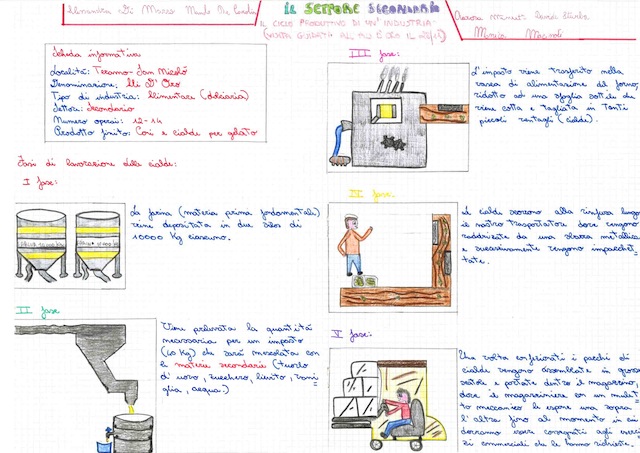 Alessandra Di Marco
IL SETTORE SECONDARIO
IL CICLO PRODUTTIVO DI UN' INDUSTRIA
Scheda informativa
Località: Teramo-San Nicolò
Denominazione: Ali D'Oro
Tipo di industria: Alimentare (dolciaria)
Settore: Secondario
Numero operai: 12-14
Prodotto finito: Coni e cialde per gelato
Fasi di lavorazione delle cialde:
I fase:
La farina (materia prima fondamentale)
viene depositata in due silos di
10000 Kg ciascuno.
II fase
Viene prelevata la quantità
necessaria per un impasto
(40 Kg) che sarà mescolata con
le materie secondarie (tuorlo
d'uovo, zucchero, lievito, vani=
glia, acqua.)
III fase:
L'impasto viene trasferito nella
vasca di alimentazione del forno,
ridotto ad una sfoglia sottile che
viene cotta e tagliata in tanti
piccoli ventagli (cialde).
fase:
Le cialde escono alla rinfusa lungo
il nastro trasportatore dove vengono
raddrizzate da una sbarra metallica
e successivamente vengono impacchet=
tate.
V fase:
Una volta confezionati i pacchi di
cialde vengono assemblate in grosse
scatole e portate dentro il magazzino,
dove il magazziniere con un mulet=
to meccanico le ripone una sopra
l'altra fino al momento in cui
dovranno essere consegnati agli eserci=
zi commerciali che le hanno richieste.